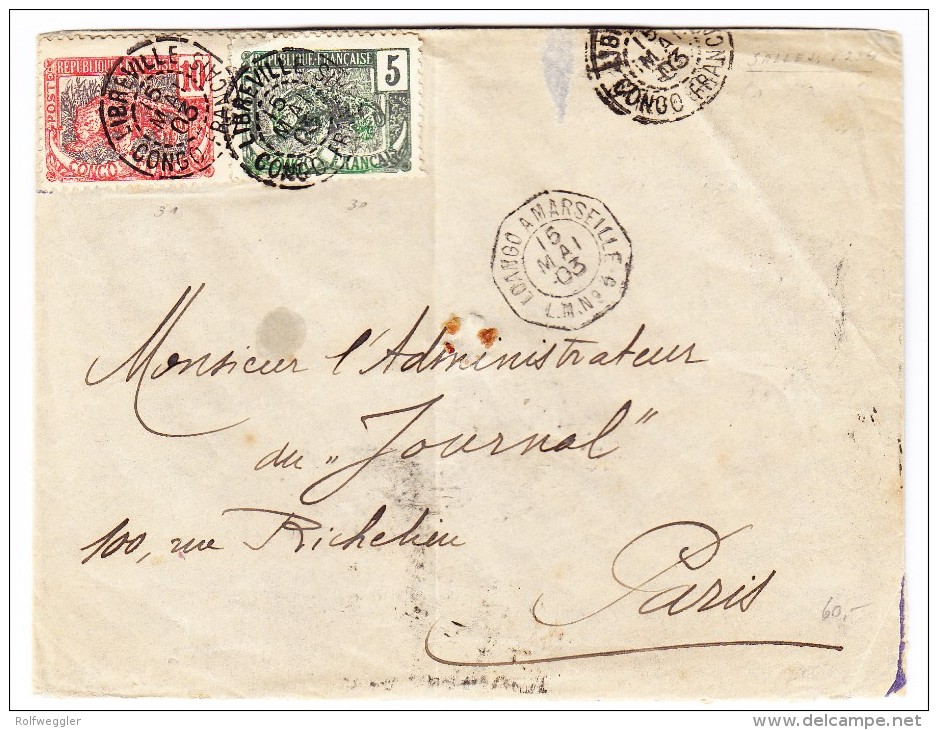 RÉPUBLIQUE FRANÇAISE
10
POSTES
CONGO
RÉPUBLIQUE FRANÇAISE
5
CONGO FRANÇAIS
LIBREVILLE
15
MAI
03
CONGO FRANÇAIS
LIBREVILLE
15
MAI
03
CONGO FR
15
MAI
03
CONGO FRANC
31
30
LOANGO A MARSEILLE
15
MAI
03
Monsieur l'Administrateur
du „Journal"
100, rue Richelieu
Paris
60,-
Rolfweggler
www.delcampe.net